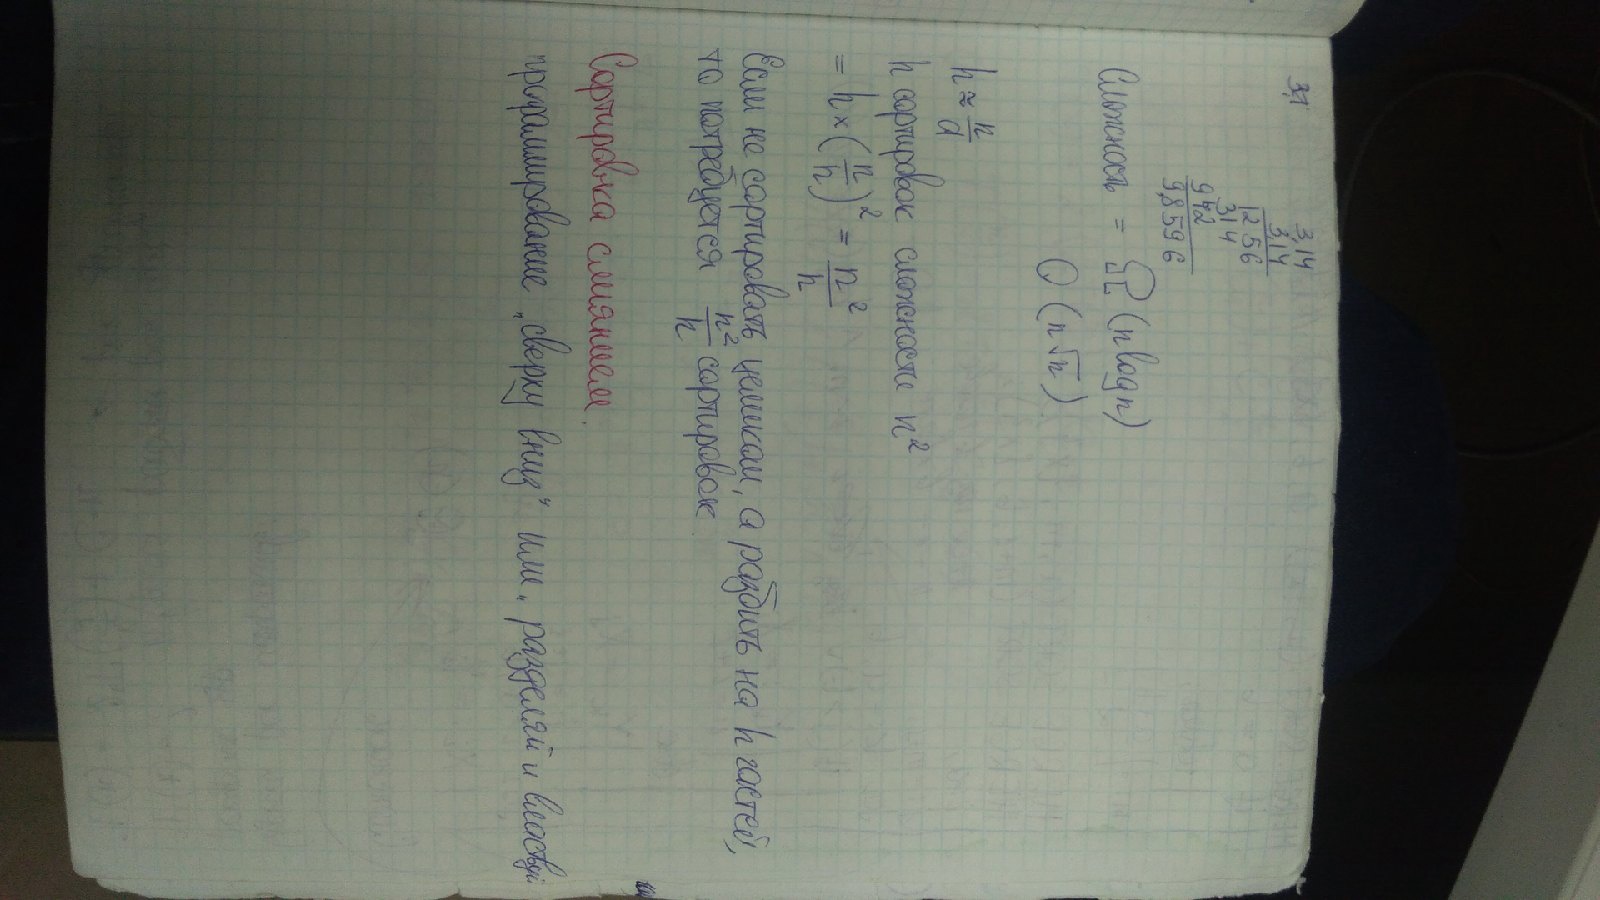 3,1
3,14
3,14
1256
314
942
9,8596
Сложность = Ω (n log n)
O (n√n)
h ≈ n/d
h сортировок сложности n²
= h × (n/h)² = n²/h
Если не сортировать целиком, а разбить на h частей,
то потребуется n²/h сортировок.
Сортировка слиянием.
программирование „сверху вниз“ или „разделяй и властвуй